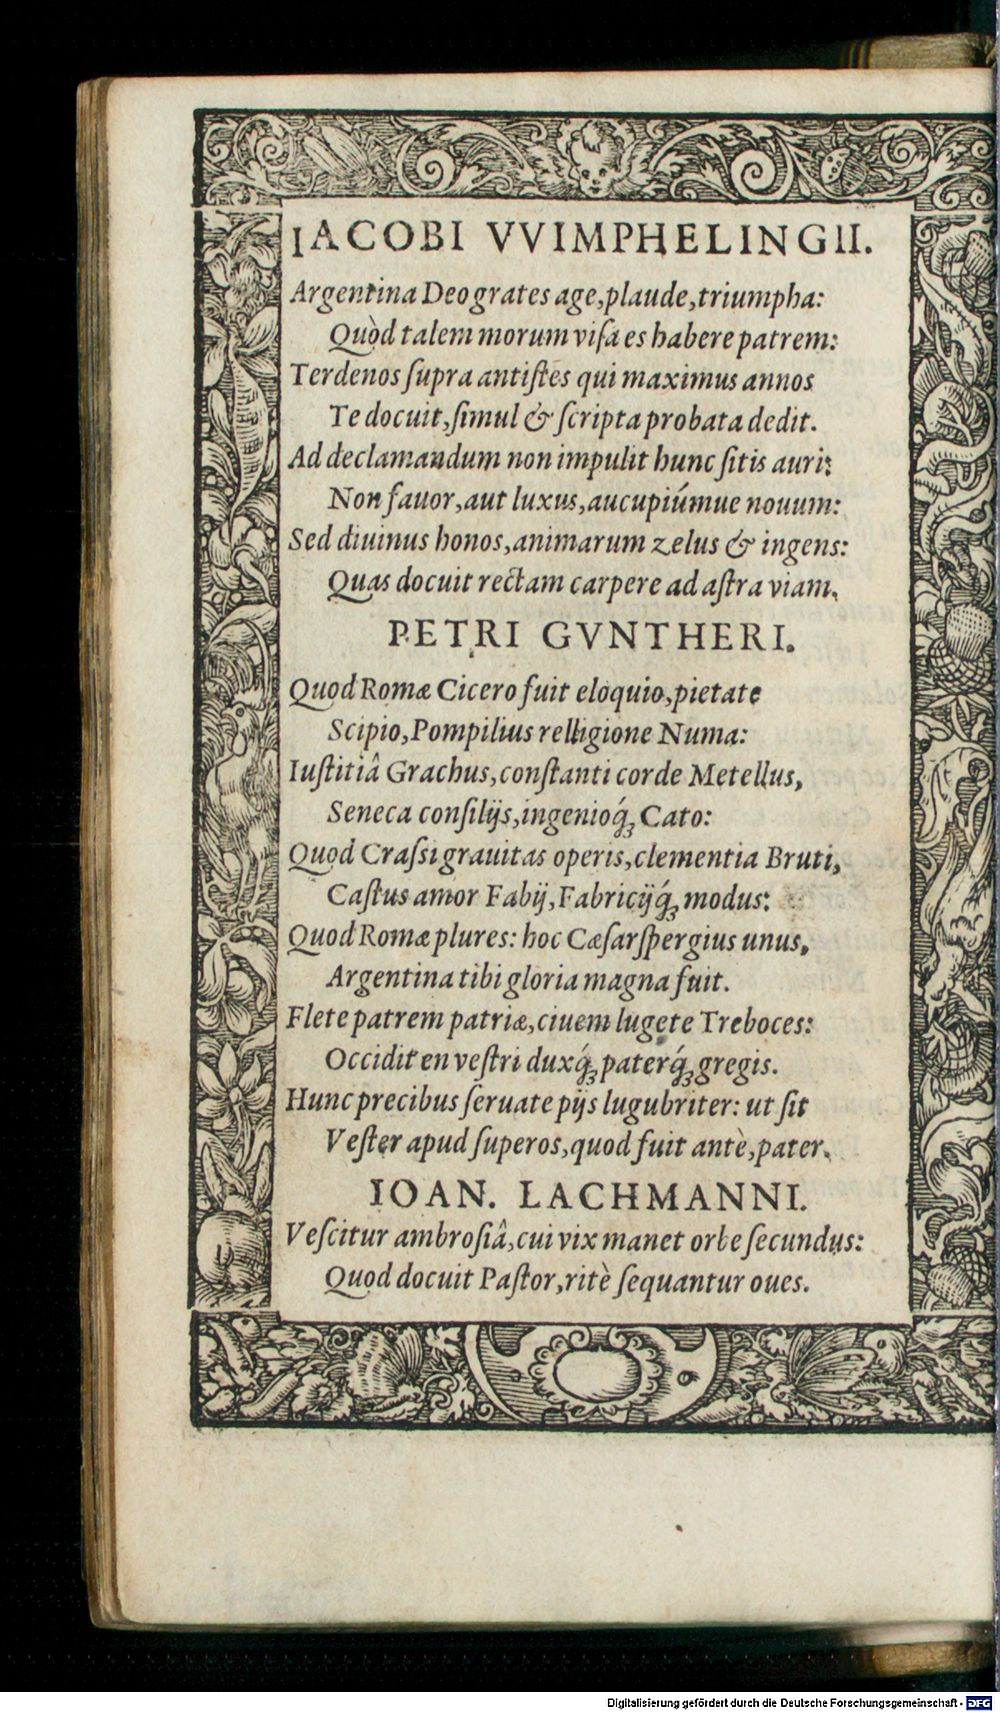 IACOBI VVIMPHELINGII.
Argentina Deo grates age, plaude, triumpha:
Quòd talem morum visa es habere patrem:
Terdenos ſupra antiſtes qui maximus annos
Te docuit, ſimul & ſcripta probata dedit.
Ad declamandum non impulit hunc ſitis auri:
Non fauor, aut luxus, aucupiúmue nouum:
Sed diuinus honos, animarum zelus & ingens:
Quas docuit rectam carpere ad aſtra viam.
PETRI GVNTHERI.
Quod Romæ Cicero fuit eloquio, pietate
Scipio, Pompilius relligione Numa:
Iuſtitiâ Grachus, conſtanti corde Metellus,
Seneca conſilijs, ingenioq́ꝫ Cato:
Quod Craſſi grauitas operis, clementia Bruti,
Caſtus amor Fabij, Fabricijq́ꝫ modus:
Quod Romæ plures: hoc Cæſarſpergius unus,
Argentina tibi gloria magna fuit.
Flete patrem patriæ, ciuem lugete Treboces:
Occidit en veſtri duxq́ꝫ paterq́ꝫ gregis.
Hunc precibus ſeruate pijs lugubriter: ut ſit
Veſter apud ſuperos, quod fuit antè, pater.
IOAN. LACHMANNI.
Veſcitur ambroſiâ, cui vix manet orbe ſecundus:
Quod docuit Paſtor, ritè ſequantur oues.
Digitalisierung gefördert durch die Deutsche Forschungsgemeinschaft - DFG